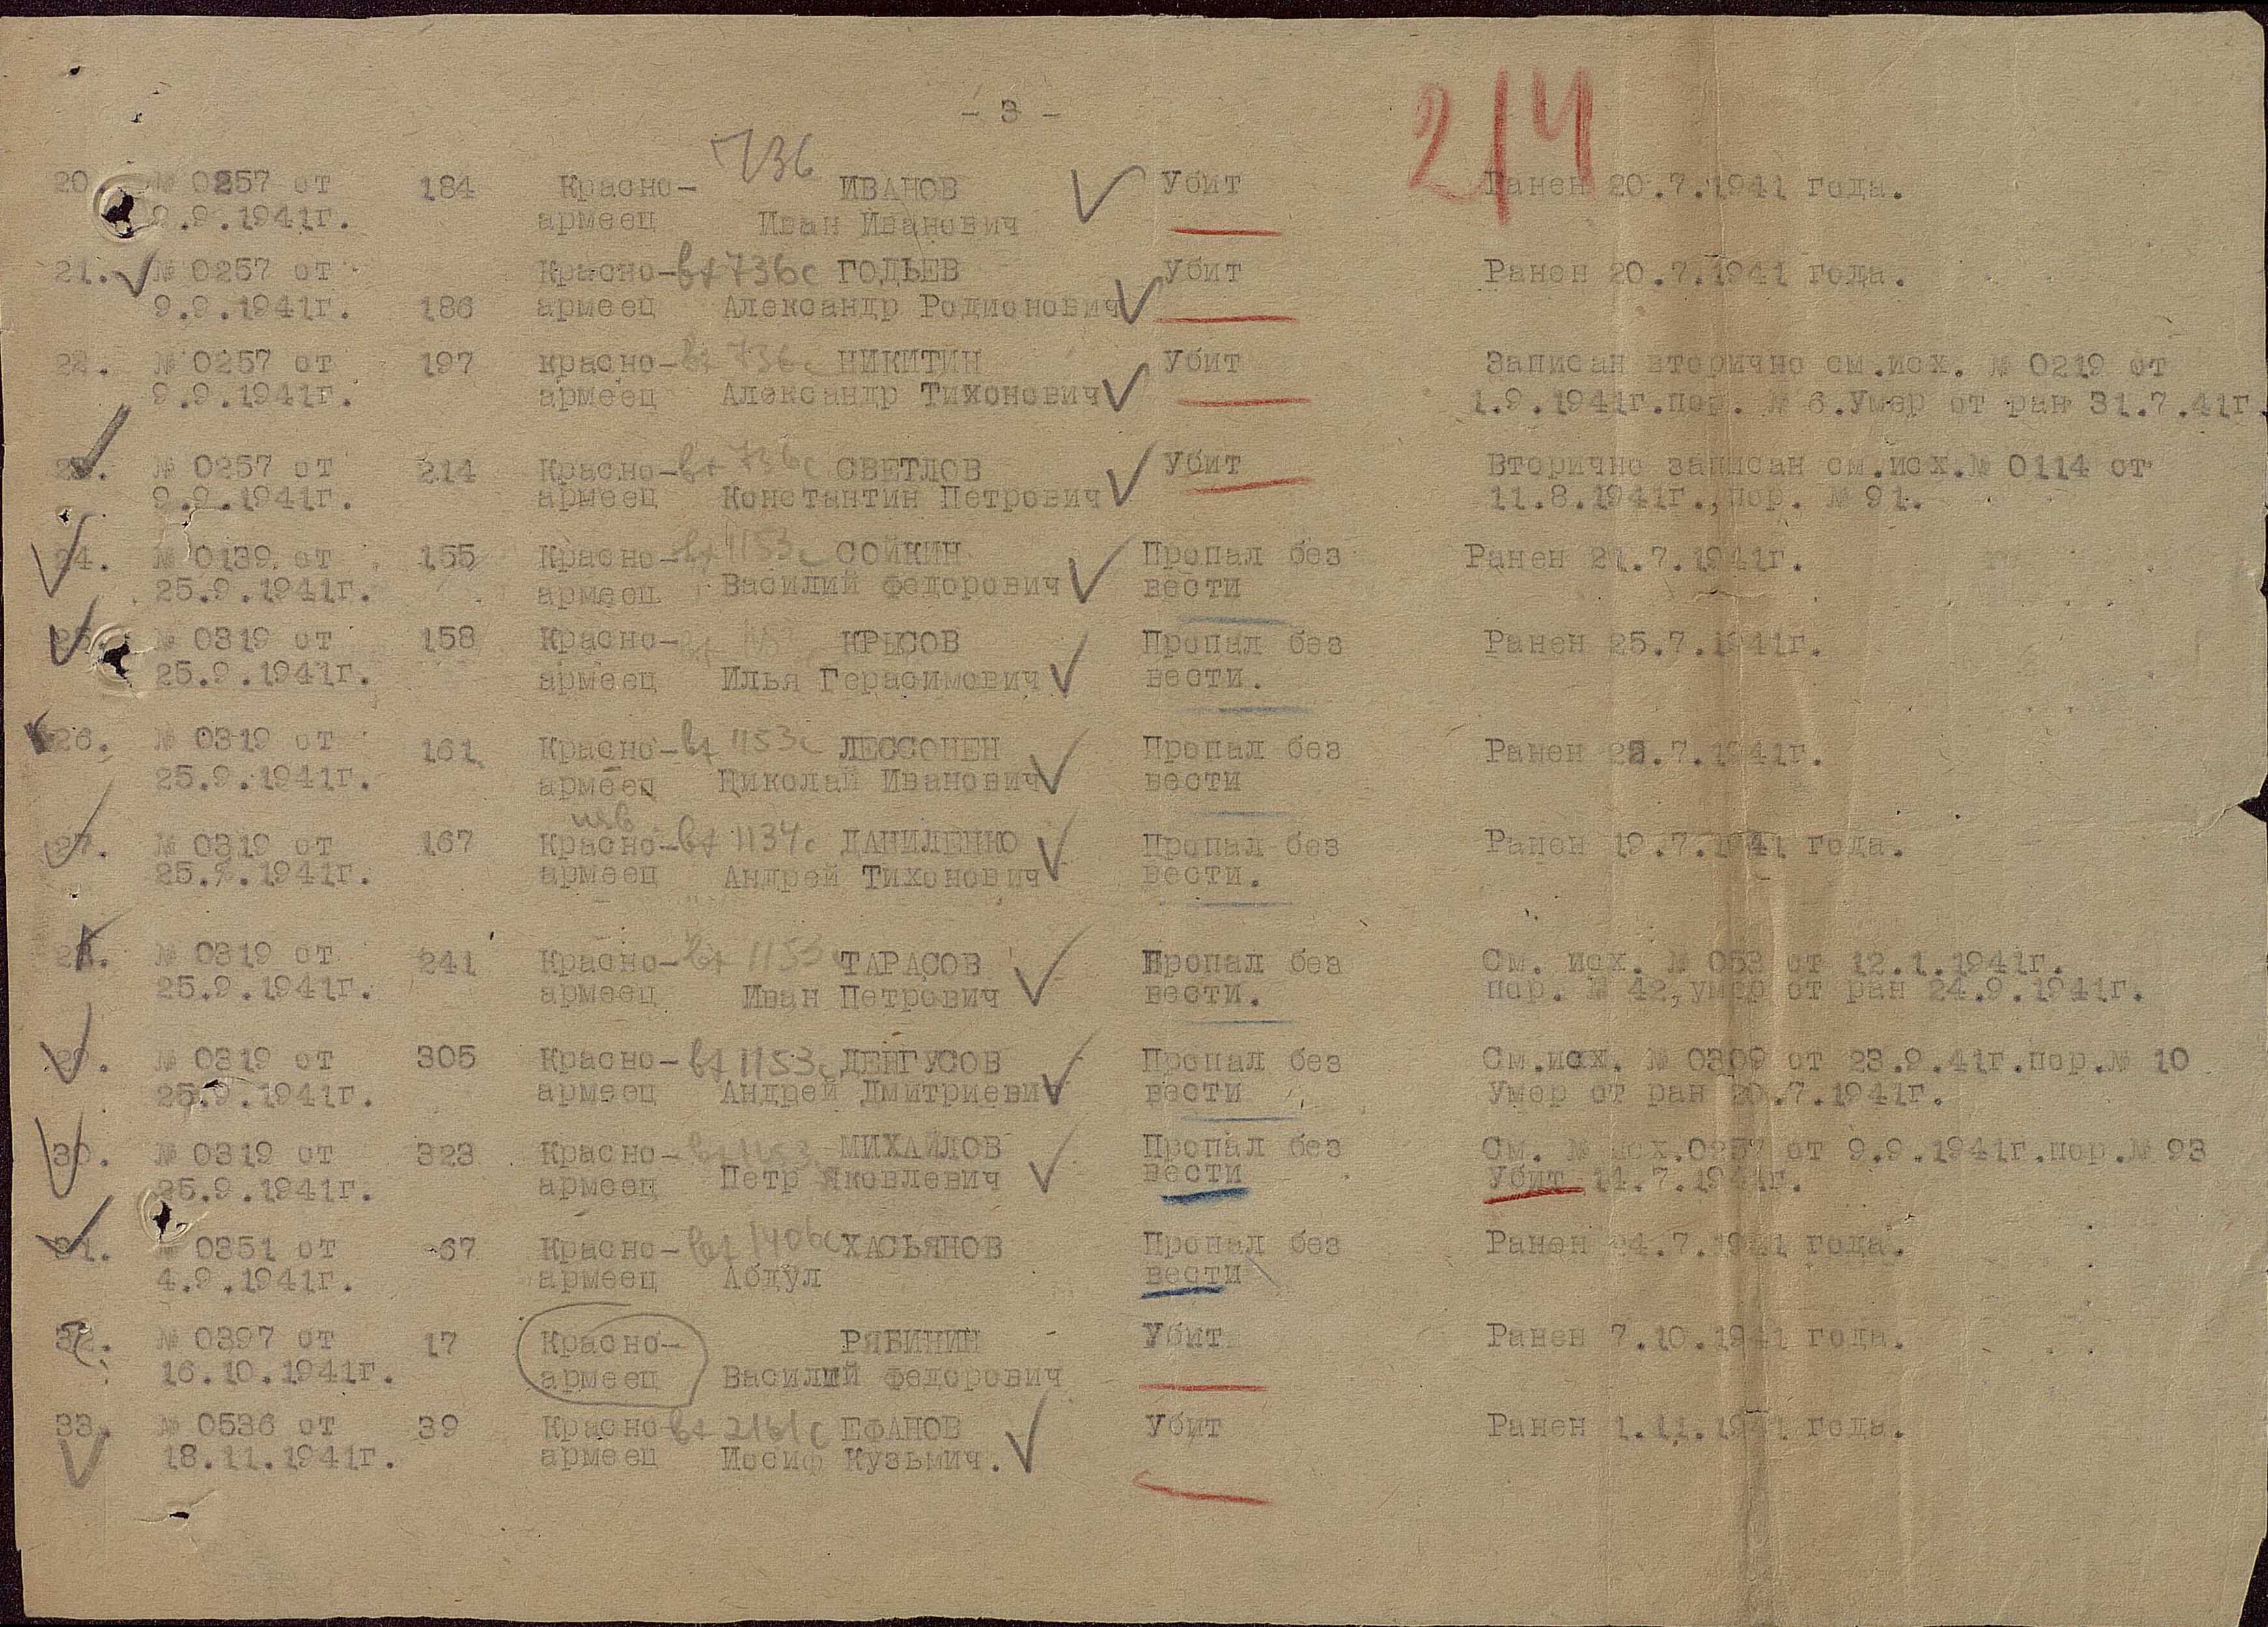 - 3 -
214
736
20. № 0257 от 184 Красно- ИВАНОВ Убит Ранен 20.7.1941 года.
9.9.1941г. армеец Иван Иванович
21. № 0257 от Красно- вх 736с ГОДЬЕВ Убит Ранен 20.7.1941 года.
9.9.1941г. 186 армеец Александр Родионович
22. № 0257 от 197 красно- вх 736с НИКИТИН Убит Записан вторично см.исх. № 0219 от
9.9.1941г. армеец Александр Тихонович 1.9.1941г.пор. № 6.Умер от ран 31.7.41г.
23. № 0257 от 214 Красно- вх 736с СВЕТЛОВ Убит Вторично записан см.исх.№ 0114 от
9.9.1941г. армеец Константин Петрович 11.8.1941г.,пор. № 91.
24. № 0139 от 155 Красно- вх 1153с СОЙКИН Пропал без Ранен 21.7.1941г.
25.9.1941г. армеец Василий Федорович вести
25. № 0319 от 158 Красно- КРЫСОВ Пропал без Ранен 25.7.1941г.
25.9.1941г. армеец Илья Герасимович вести.
26. № 0319 от 161 Красно- вх 1153с ЛЕССОНЕН Пропал без Ранен 2 .7.1941г.
25.9.1941г. армеец Николай Иванович вести
27. № 0319 от 167 Красно- вх 1134с ДАНИЛЕНКО Пропал без Ранен 19.7.1941 года.
25.9.1941г. армеец Андрей Тихонович вести.
28. № 0319 от 241 Красно- вх 1153с ТАРАСОВ Пропал без См. исх. № 053 от 12.1.1941г.
25.9.1941г. армеец Иван Петрович вести. пор. № 42,умер от ран 24.9.1941г.
29. № 0319 от 305 Красно- вх 1153с ДЕНГУСОВ Пропал без См.исх. № 0309 от 23.9.41г.пор.№ 10
25.9.1941г. армеец Андрей Дмитриевич вести Умер от ран 20.7.1941г.
30. № 0319 от 323 Красно- вх 1153 МИХАЙЛОВ Пропал без См. № исх.0257 от 9.9.1941г.пор.№ 93
25.9.1941г. армеец Петр Яковлевич вести Убит 14.7.1941г.
31. № 0351 от 67 Красно- вх 1406с ХАСЬЯНОВ Пропал без Ранен 24.7.1941 года.
4.9.1941г. армеец Абдул вести
32. № 0397 от 17 Красно- РЯБИНИН Убит Ранен 7.10.1941 года.
16.10.1941г. армеец Василий Федорович
33. № 0536 от 39 Красно- вх 2161с ЕФАНОВ Убит Ранен 1.11.1941 года.
18.11.1941г. армеец Иосиф Кузьмич.